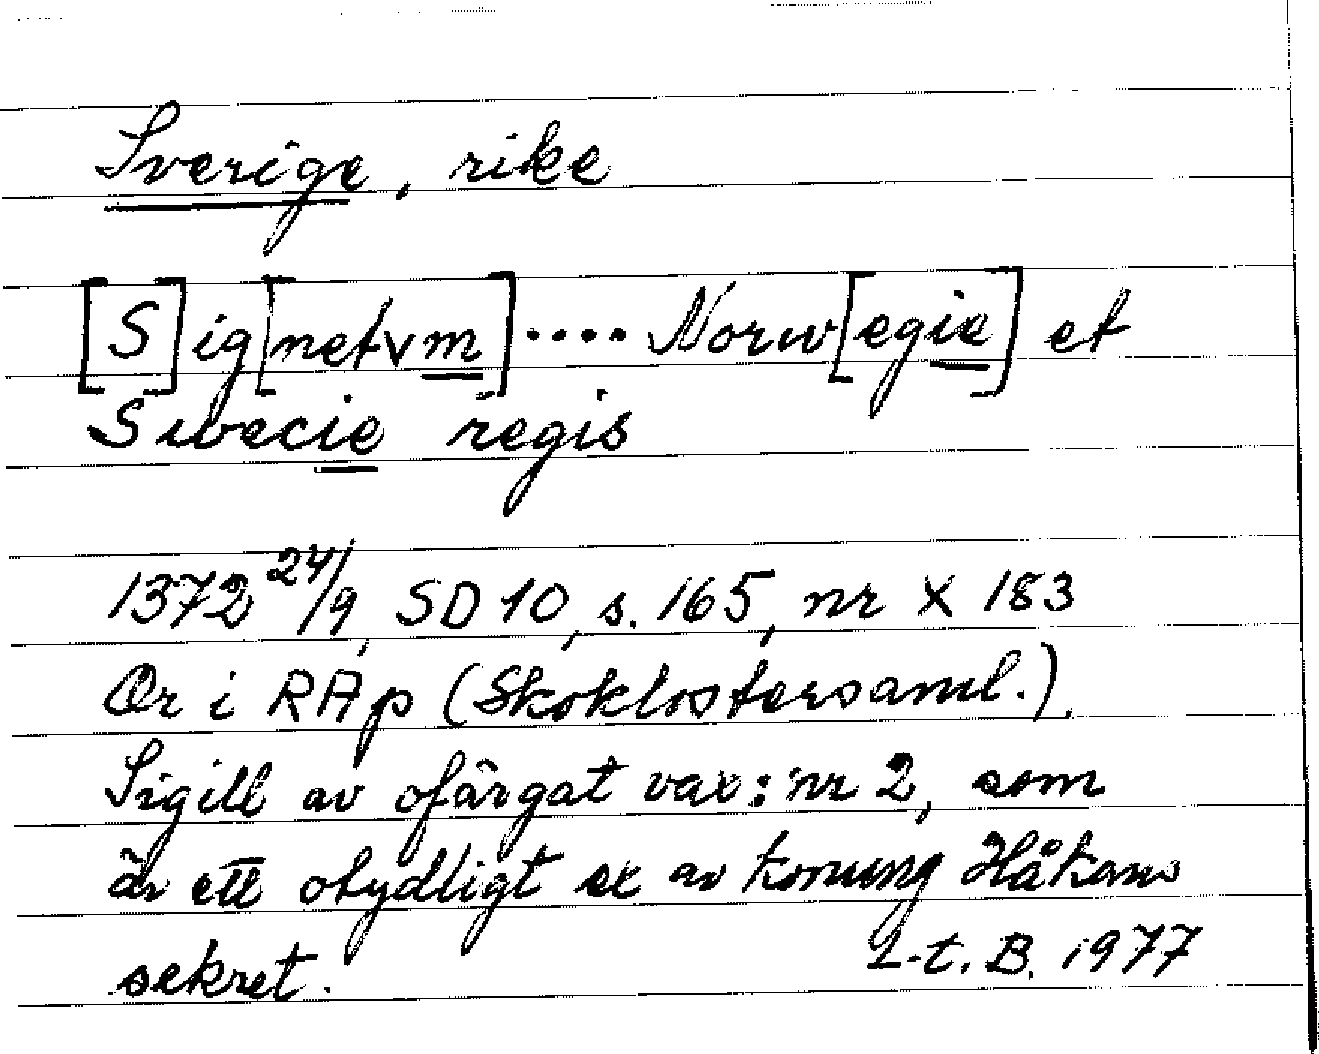 Sverige, rike
[S]ig[netvm].... Norw[egie] et
Swecie regis
1372 24/9, SD 10, s. 165, nr X 183
Or i RAp (Skoklostersaml.).
Sigill av ofärgat vax: nr 2, som
är ett otydligt ex av konung Håkans
sekret. L-t. B. 1977